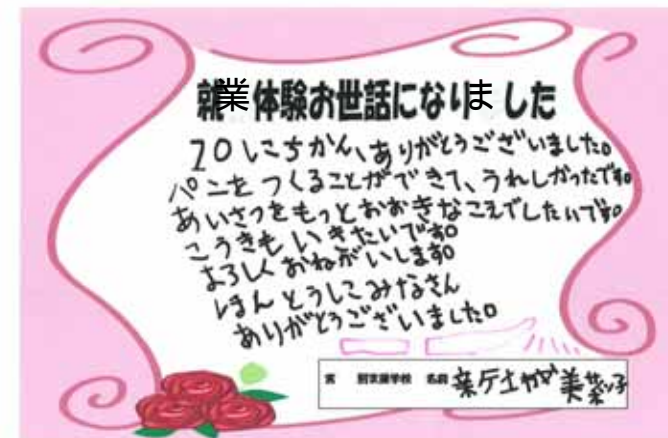 就業体験お世話になりました
10にちかん、ありがとうございました。
パンをつくることができて、うれしかったです。
あいさつをもっとおおきなこえでしたいです。
こうきもいきたいです。
よろしくおねがいします。
ほんとうにみなさん
ありがとうございました。
別支援学校 名前